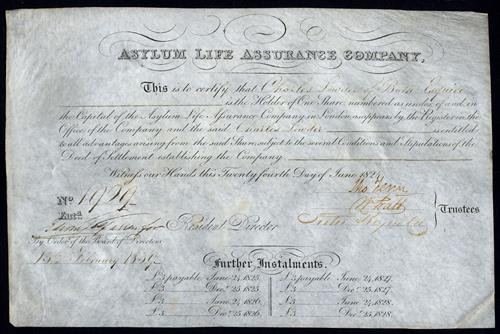 ASYLUM LIFE ASSURANCE COMPANY,
This is to certify that Charles Lowder of Bath Esquire
is the Holder of One Share, numbered as under, of and in
the Capital of the Asylum Life Assurance Company in London, as appears by the Register in the
Office of the Company and the said Charles Lowder is entitled
to all advantages arising from the said Share, subject to the several Conditions and Stipulations of the
Deed of Settlement establishing the Company
Witness our Hands this Twenty fourth Day of June 182
No 1929
Trustees
Entd.
Resident Director
By Order of the Board of Directors
February
Further Instalments.
£3 payable June 24, 1825. £3 payable June 24, 1827.
£3 Decr. 25, 1825. £3 Decr. 25, 1827.
£3 June 24, 1826. £3 June 24, 1828.
£3 Decr. 25, 1826. £3 Decr. 25, 1828.